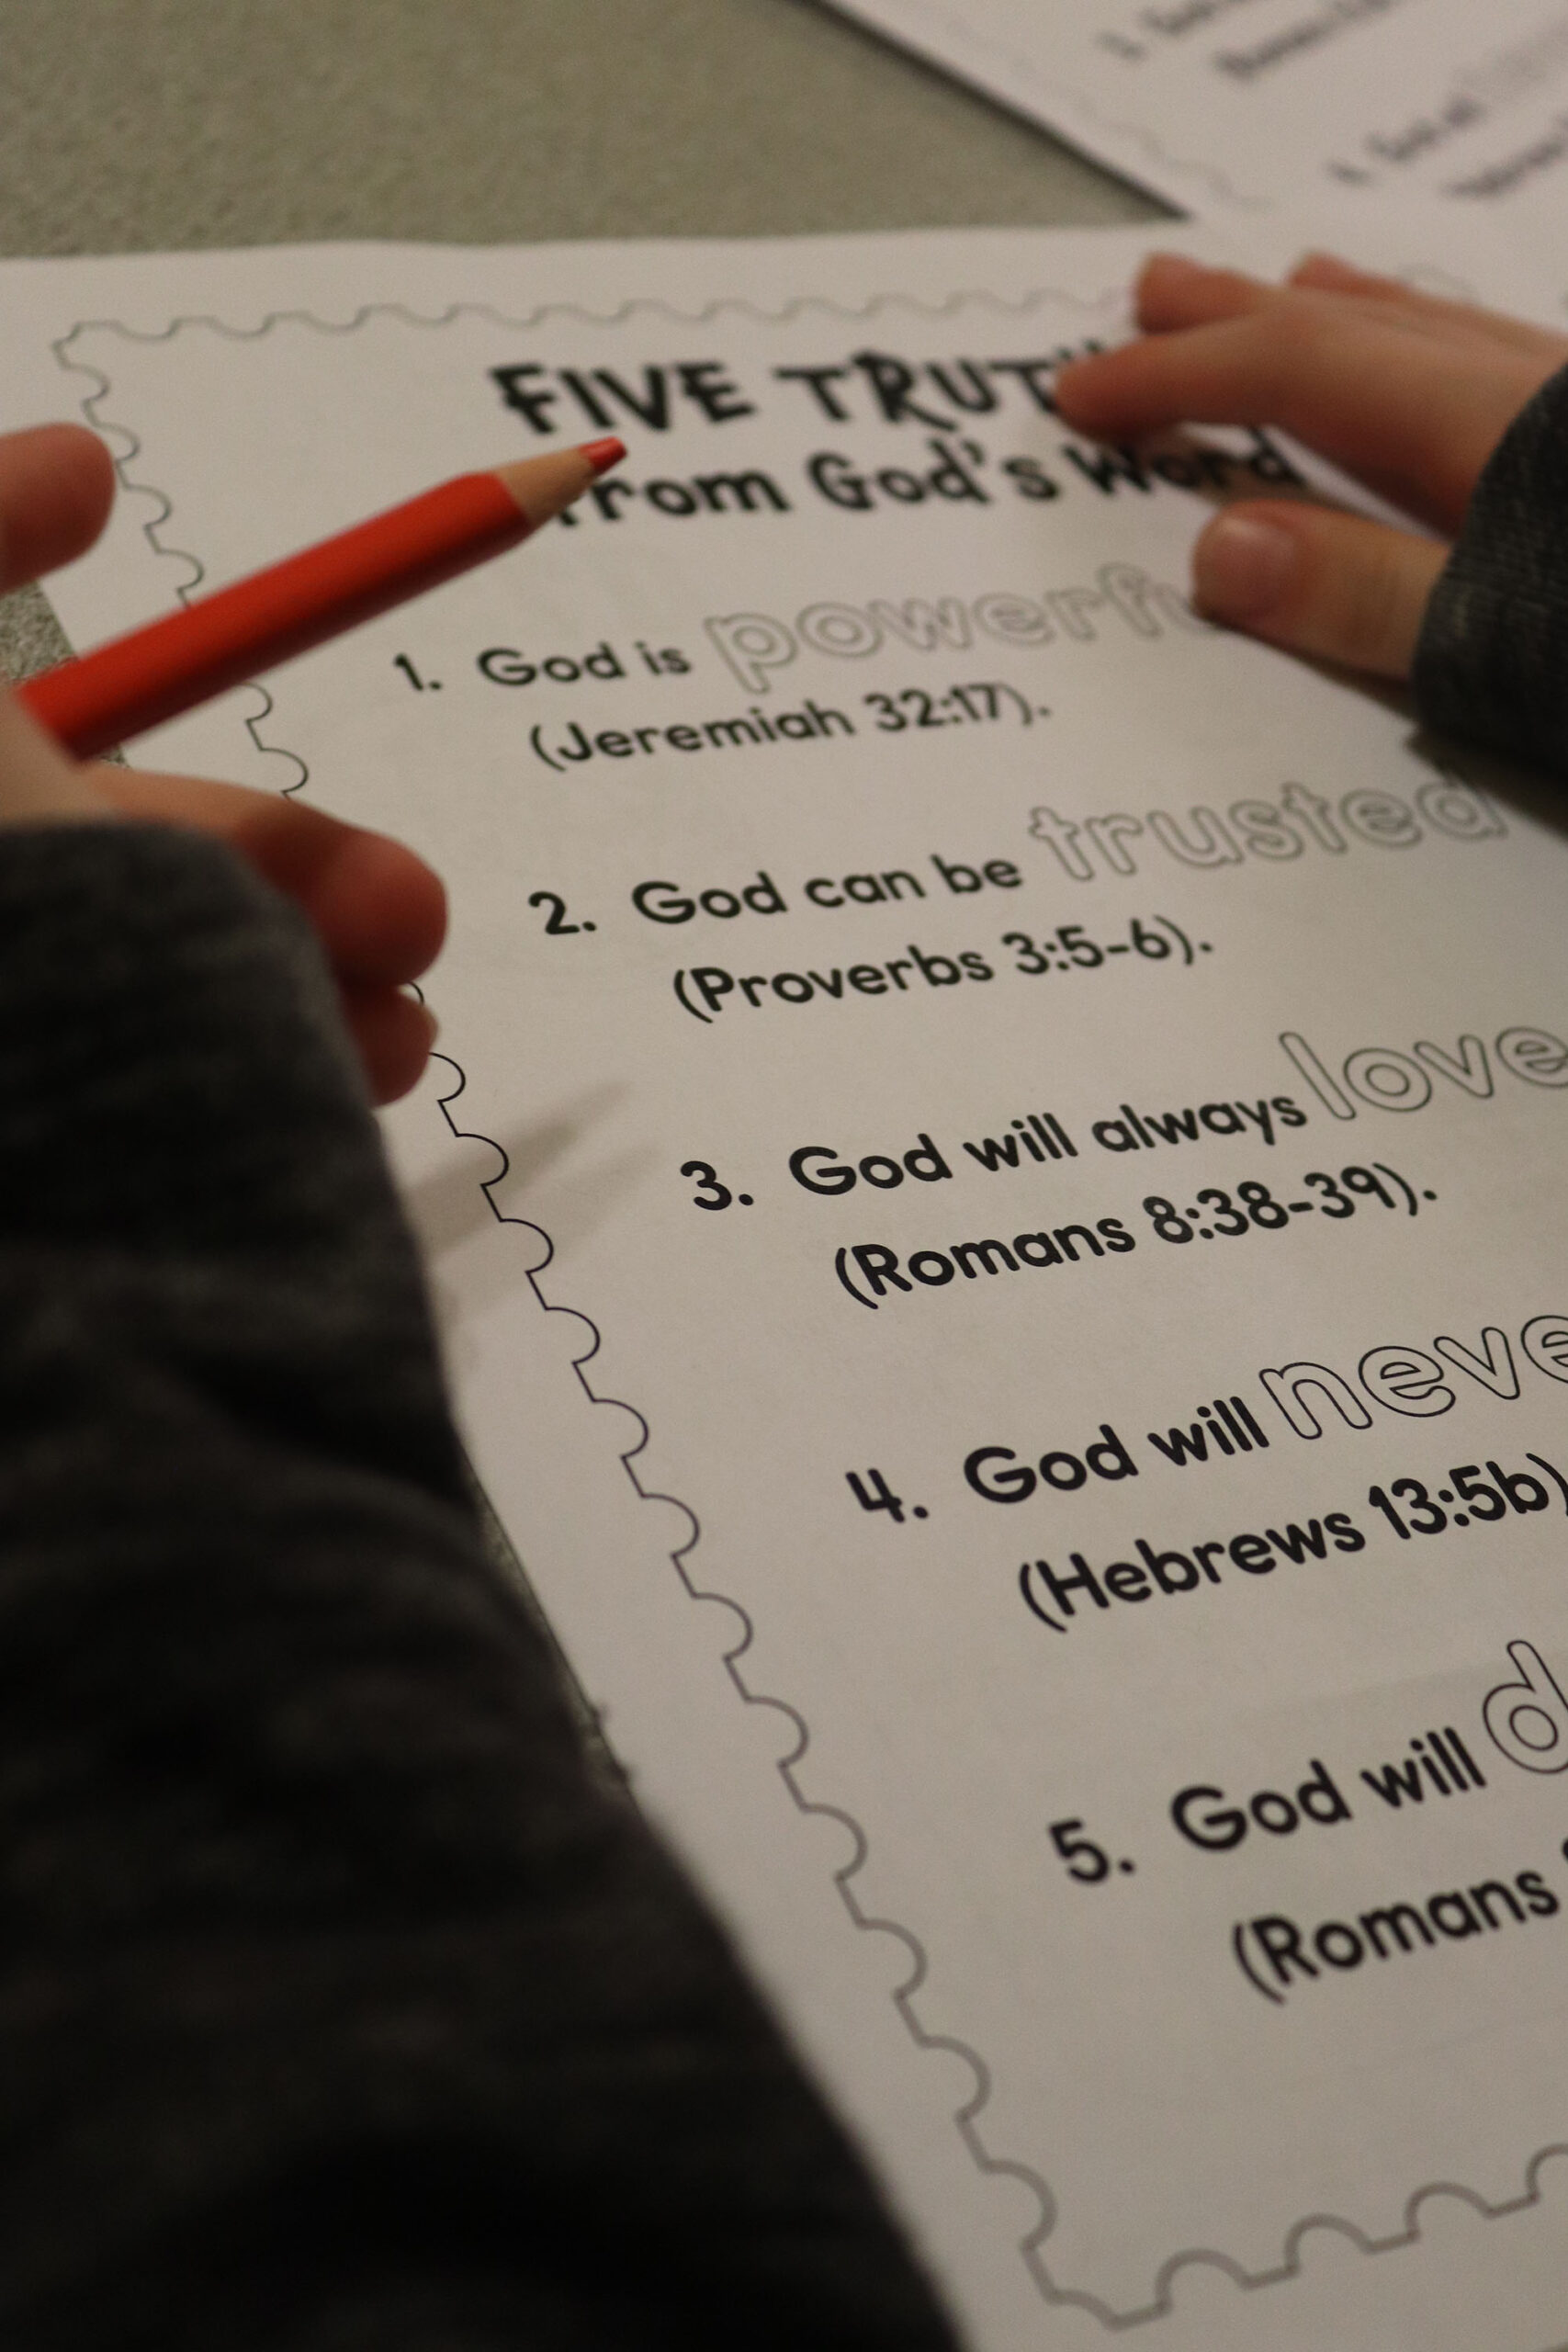 FIVE TRUTH
from God's Word
1. God is powerfu
(Jeremiah 32:17).
2. God can be trusted
(Proverbs 3:5-6).
3. God will always love
(Romans 8:38-39).
4. God will neve
(Hebrews 13:5b)
5. God will d
(Romans